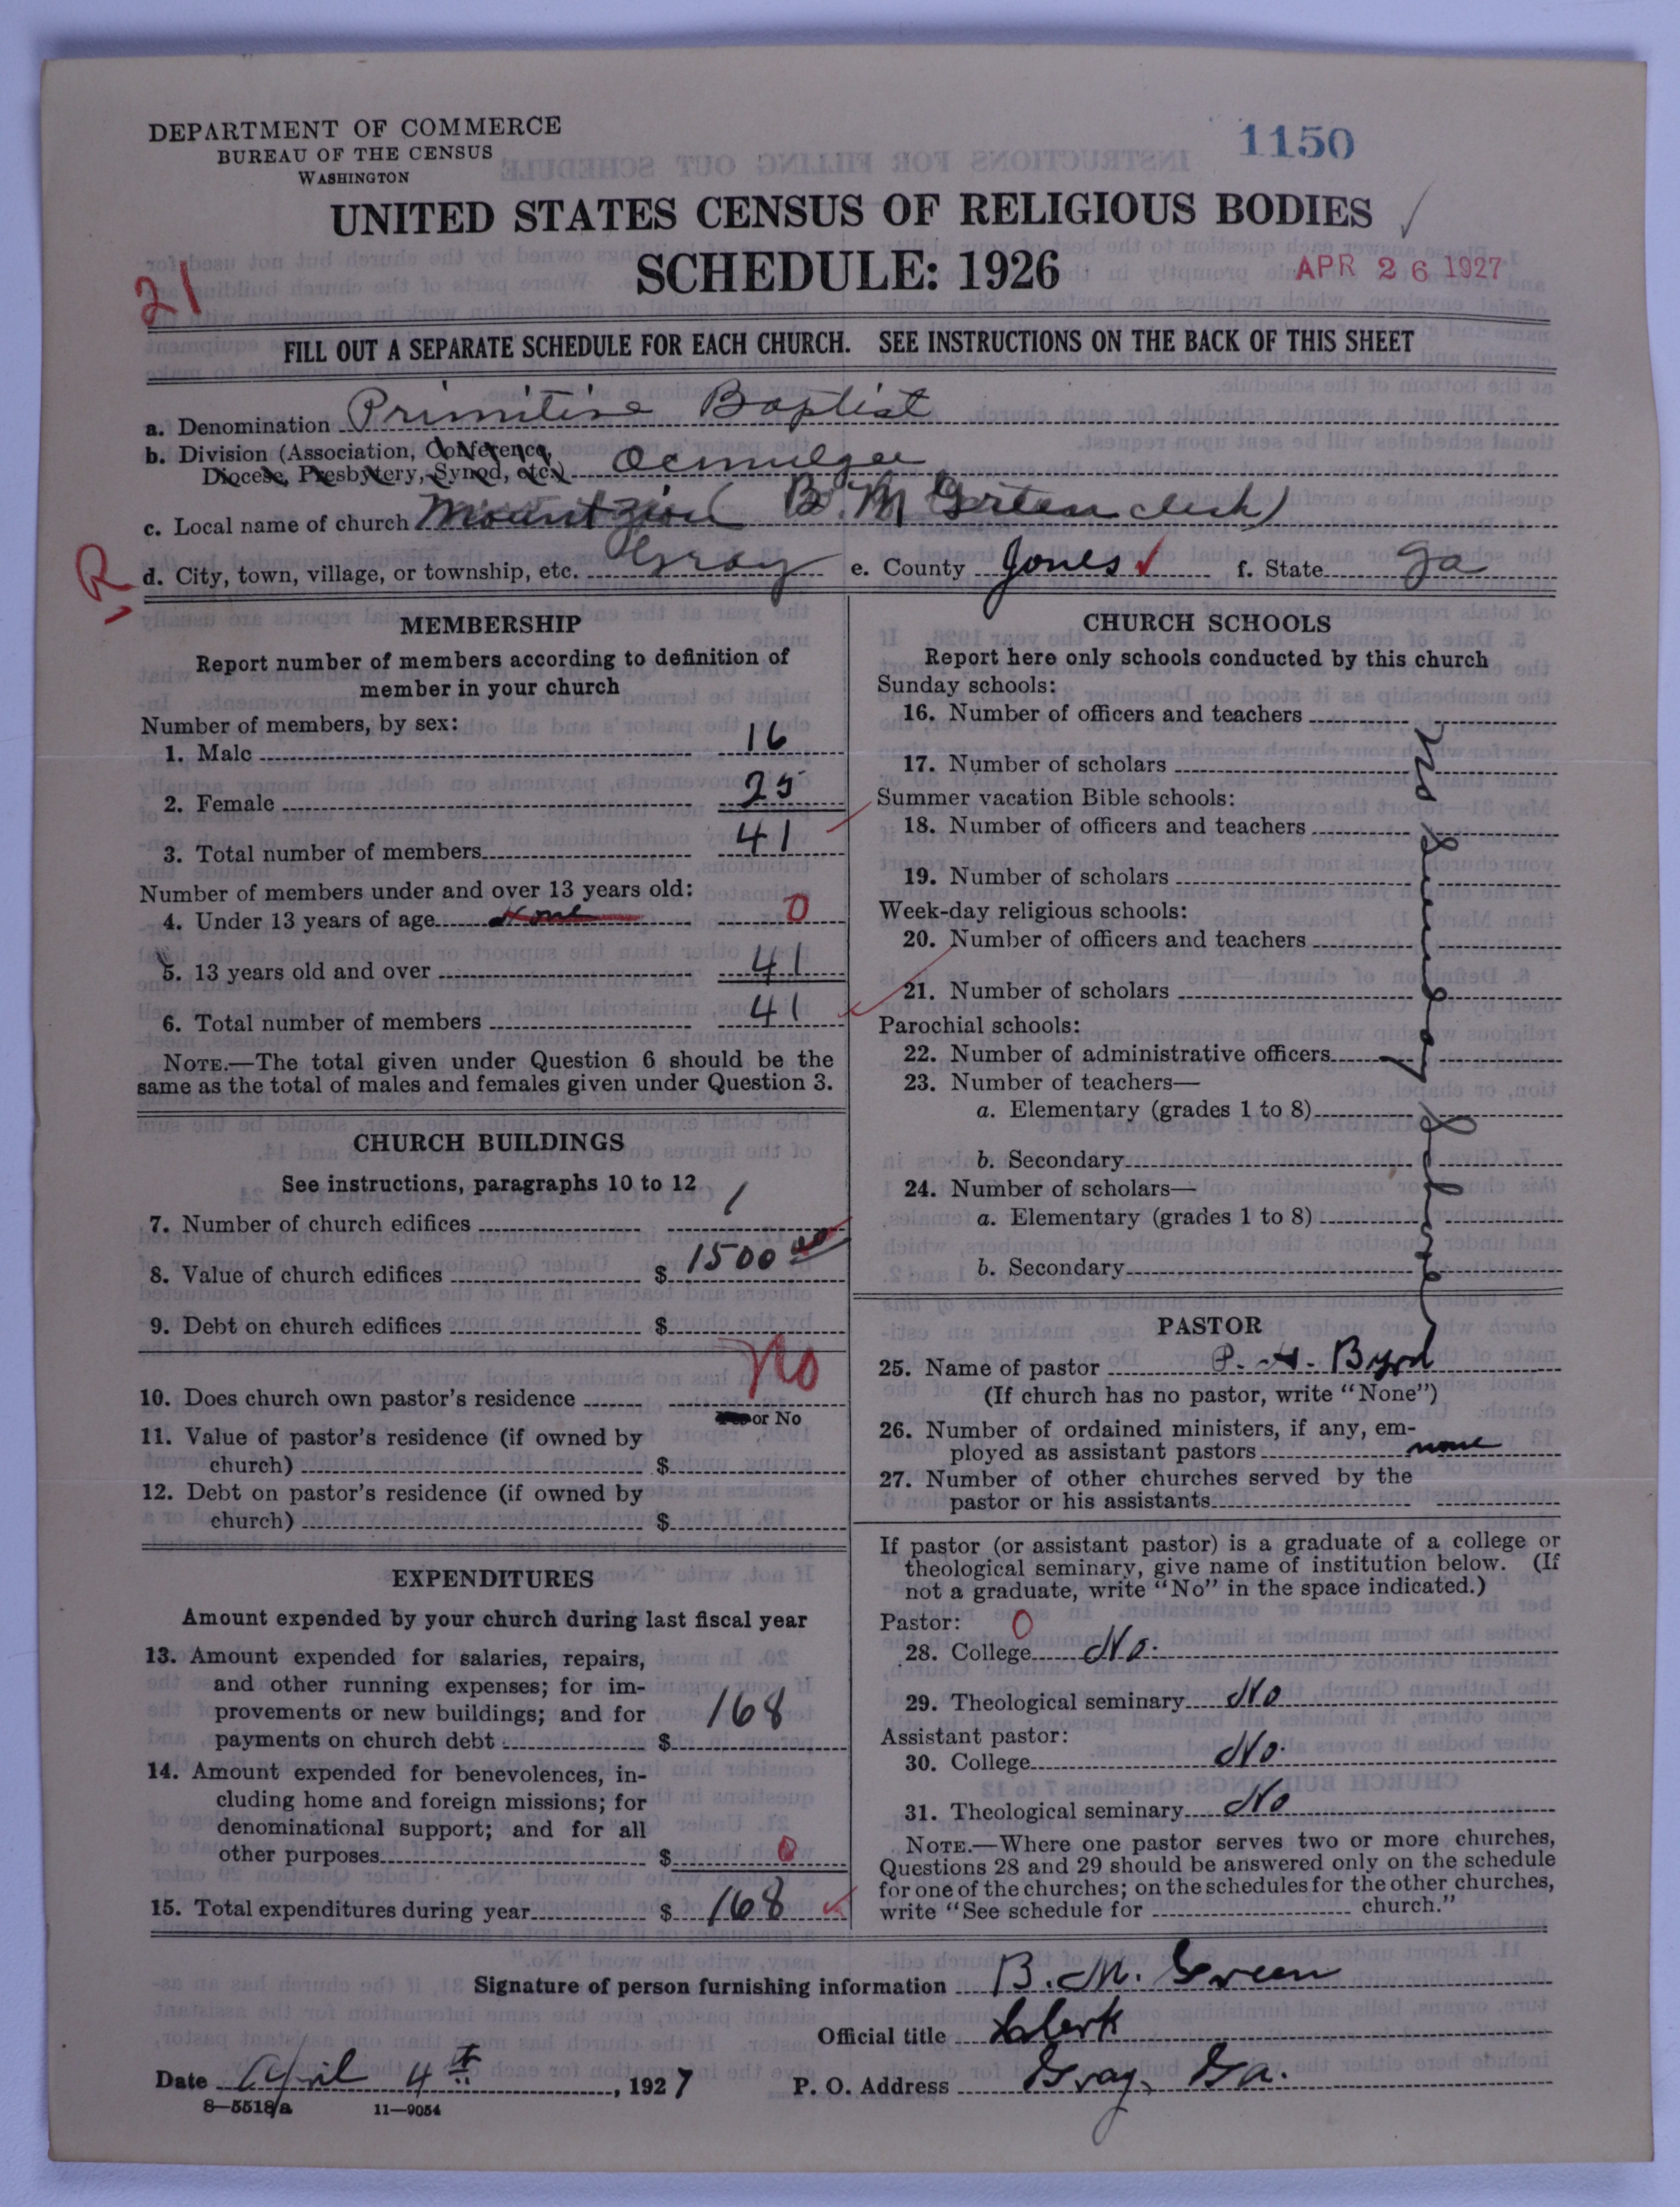 DEPARTMENT OF COMMERCE
BUREAU OF THE CENSUS
WASHINGTON
1150
UNITED STATES CENSUS OF RELIGIOUS BODIES
SCHEDULE: 1926
APR 26 1927
21
FILL OUT A SEPARATE SCHEDULE FOR EACH CHURCH. SEE INSTRUCTIONS ON THE BACK OF THIS SHEET
a. Denomination Primitive Baptist
b. Division (Association, Conference,
Diocese, Presbytery, Synod, etc.) Ocmulgee
c. Local name of church Mount zion (B. M Green clerk)
R
d. City, town, village, or township, etc. Gray e. County Jones f. State Ga
MEMBERSHIP
Report number of members according to definition of
member in your church
Number of members, by sex:
1. Male 16
2. Female 25
3. Total number of members 41
Number of members under and over 13 years old:
4. Under 13 years of age None 0
5. 13 years old and over 41
6. Total number of members 41
NOTE.—The total given under Question 6 should be the
same as the total of males and females given under Question 3.
CHURCH BUILDINGS
See instructions, paragraphs 10 to 12
7. Number of church edifices 1
8. Value of church edifices $ 1500 00
9. Debt on church edifices $
10. Does church own pastor's residence No
Yes or No
11. Value of pastor's residence (if owned by
church) $
12. Debt on pastor's residence (if owned by
church) $
EXPENDITURES
Amount expended by your church during last fiscal year
13. Amount expended for salaries, repairs,
and other running expenses; for im-
provements or new buildings; and for
payments on church debt $ 168
14. Amount expended for benevolences, in-
cluding home and foreign missions; for
denominational support; and for all
other purposes $ 0
15. Total expenditures during year $ 168
CHURCH SCHOOLS
Report here only schools conducted by this church
Sunday schools:
16. Number of officers and teachers
17. Number of scholars
Summer vacation Bible schools:
18. Number of officers and teachers
19. Number of scholars
Week-day religious schools:
20. Number of officers and teachers
21. Number of scholars
Parochial schools:
22. Number of administrative officers
23. Number of teachers—
a. Elementary (grades 1 to 8)
b. Secondary
24. Number of scholars—
a. Elementary (grades 1 to 8)
b. Secondary
PASTOR
25. Name of pastor P. H. Byrd
(If church has no pastor, write "None")
26. Number of ordained ministers, if any, em-
ployed as assistant pastors none
27. Number of other churches served by the
pastor or his assistants
If pastor (or assistant pastor) is a graduate of a college or
theological seminary, give name of institution below. (If
not a graduate, write "No" in the space indicated.)
Pastor: 0
28. College No.
29. Theological seminary No
Assistant pastor:
30. College No.
31. Theological seminary No
NOTE.—Where one pastor serves two or more churches,
Questions 28 and 29 should be answered only on the schedule
for one of the churches; on the schedules for the other churches,
write "See schedule for church."
Signature of person furnishing information B. M. Green
Official title Clerk
Date April 4th, 1927 P. O. Address Gray, Ga.
8—5518/a 11—9054